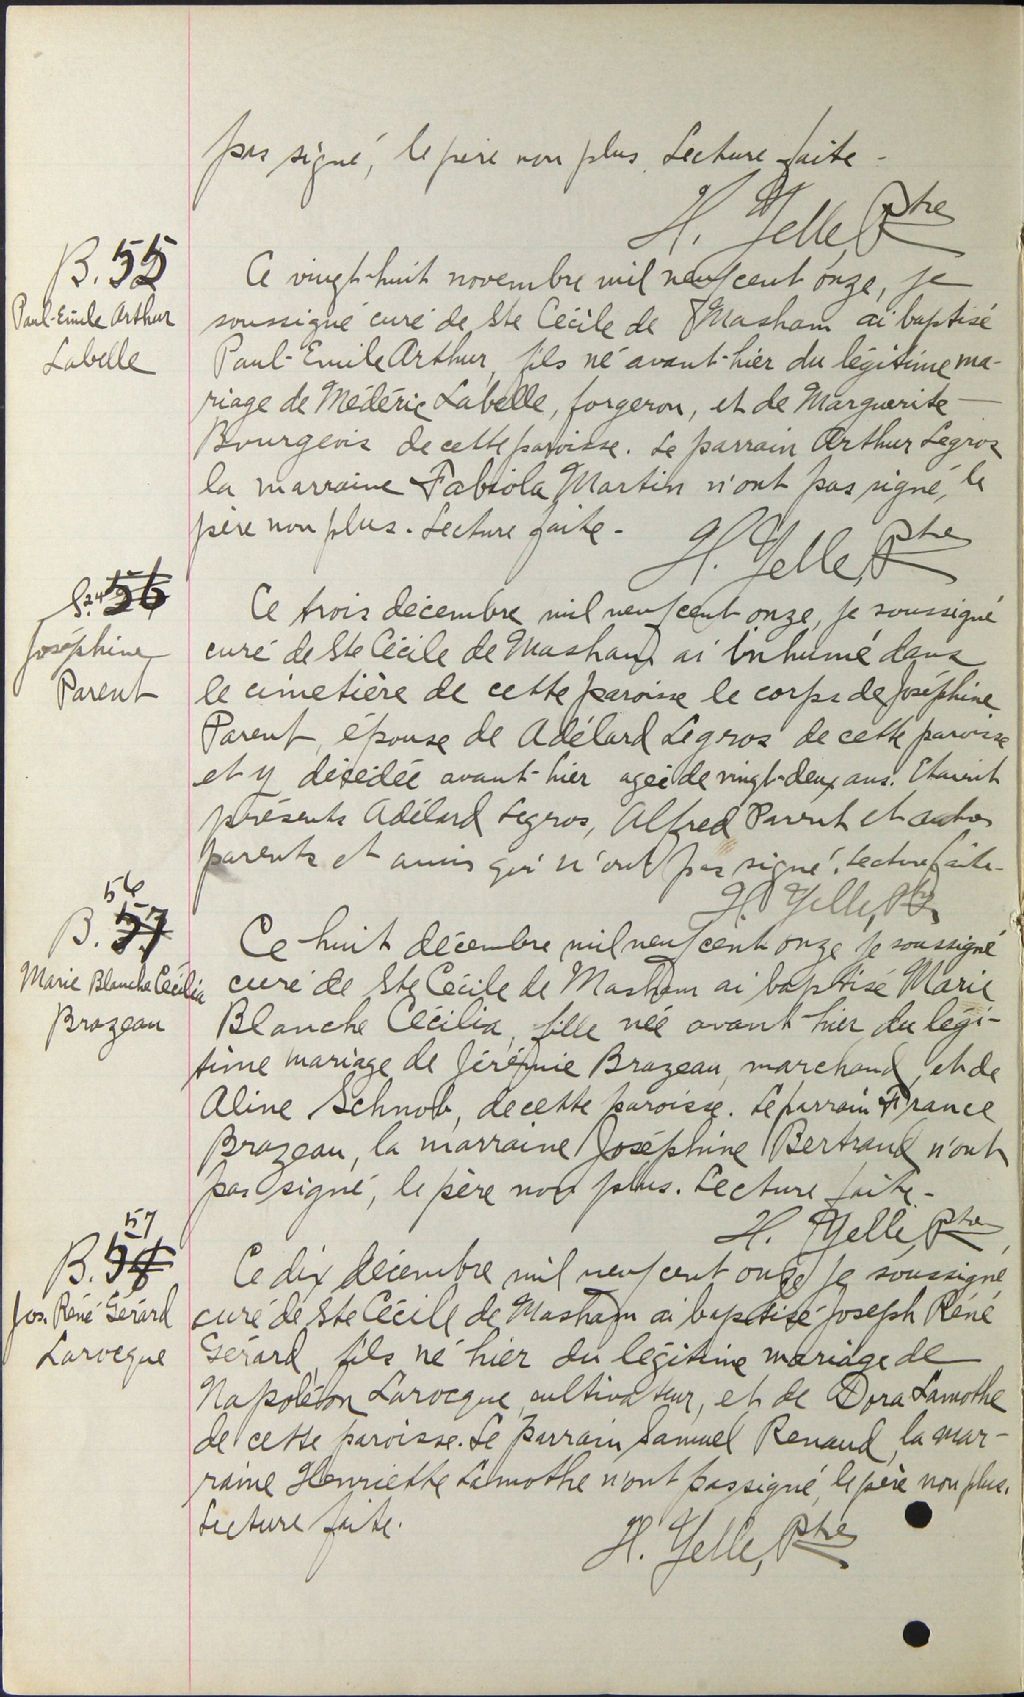 pas signé, le père non plus. Lecture faite -
H. Yelle, Ptre
B. 55
Paul-Emile Arthur
Labelle
Ce vingt-huit novembre mil neuf cent onze, je
soussigné curé de Ste Cécile de Masham ai baptisé
Paul-Emile Arthur, fils né avant-hier du légitime ma-
riage de Médéric Labelle, forgeron, et de Marguerite
Bourgeois de cette paroisse. Le parrain Arthur Legros
la marraine Fabiola Martin n'ont pas signé, le
père non plus. Lecture faite -
H. Yelle, Ptre
S. 24 56
Joséphine
Parent
Ce trois décembre mil neuf cent onze, je soussigné
curé de Ste Cécile de Masham ai inhumé dans
le cimetière de cette paroisse le corps de Joséphine
Parent, épouse de Adélard Legros de cette paroisse
et y décédée avant-hier agée de vingt-deux ans. Etaient
présents Adélard Legros, Alfred Parent et autres
parents et amis qui n'ont pas signé. Lecture faite -
H. Yelle, Ptre
56
B. 57
Marie Blanche Cécilia
Brazeau
Ce huit décembre mil neuf cent onze je soussigné
curé de Ste Cécile de Masham ai baptisé Marie
Blanche Cécilia, fille née avant hier du légi-
time mariage de Jérémie Brazeau, marchand, et de
Aline Schnob, de cette paroisse. Le parrain France
Brazeau, la marraine Joséphine Bertrand n'ont
pas signé, le père non plus. Lecture faite -
H. Yelle, Ptre
57
B. 58
Jos. René Gérard
Larocque
Ce dix décembre mil neuf cent onze je soussigné
curé de Ste Cécile de Masham ai baptisé Joseph Réné
Gérard, fils né hier du légitime mariage de
Napoléon Larocque, cultivateur, et de Dora Lamothe
de cette paroisse. Le parrain Samuel Renaud, la mar-
raine Henriette Lamothe n'ont pas signé, le père non plus.
Lecture faite.
H. Yelle, Ptre